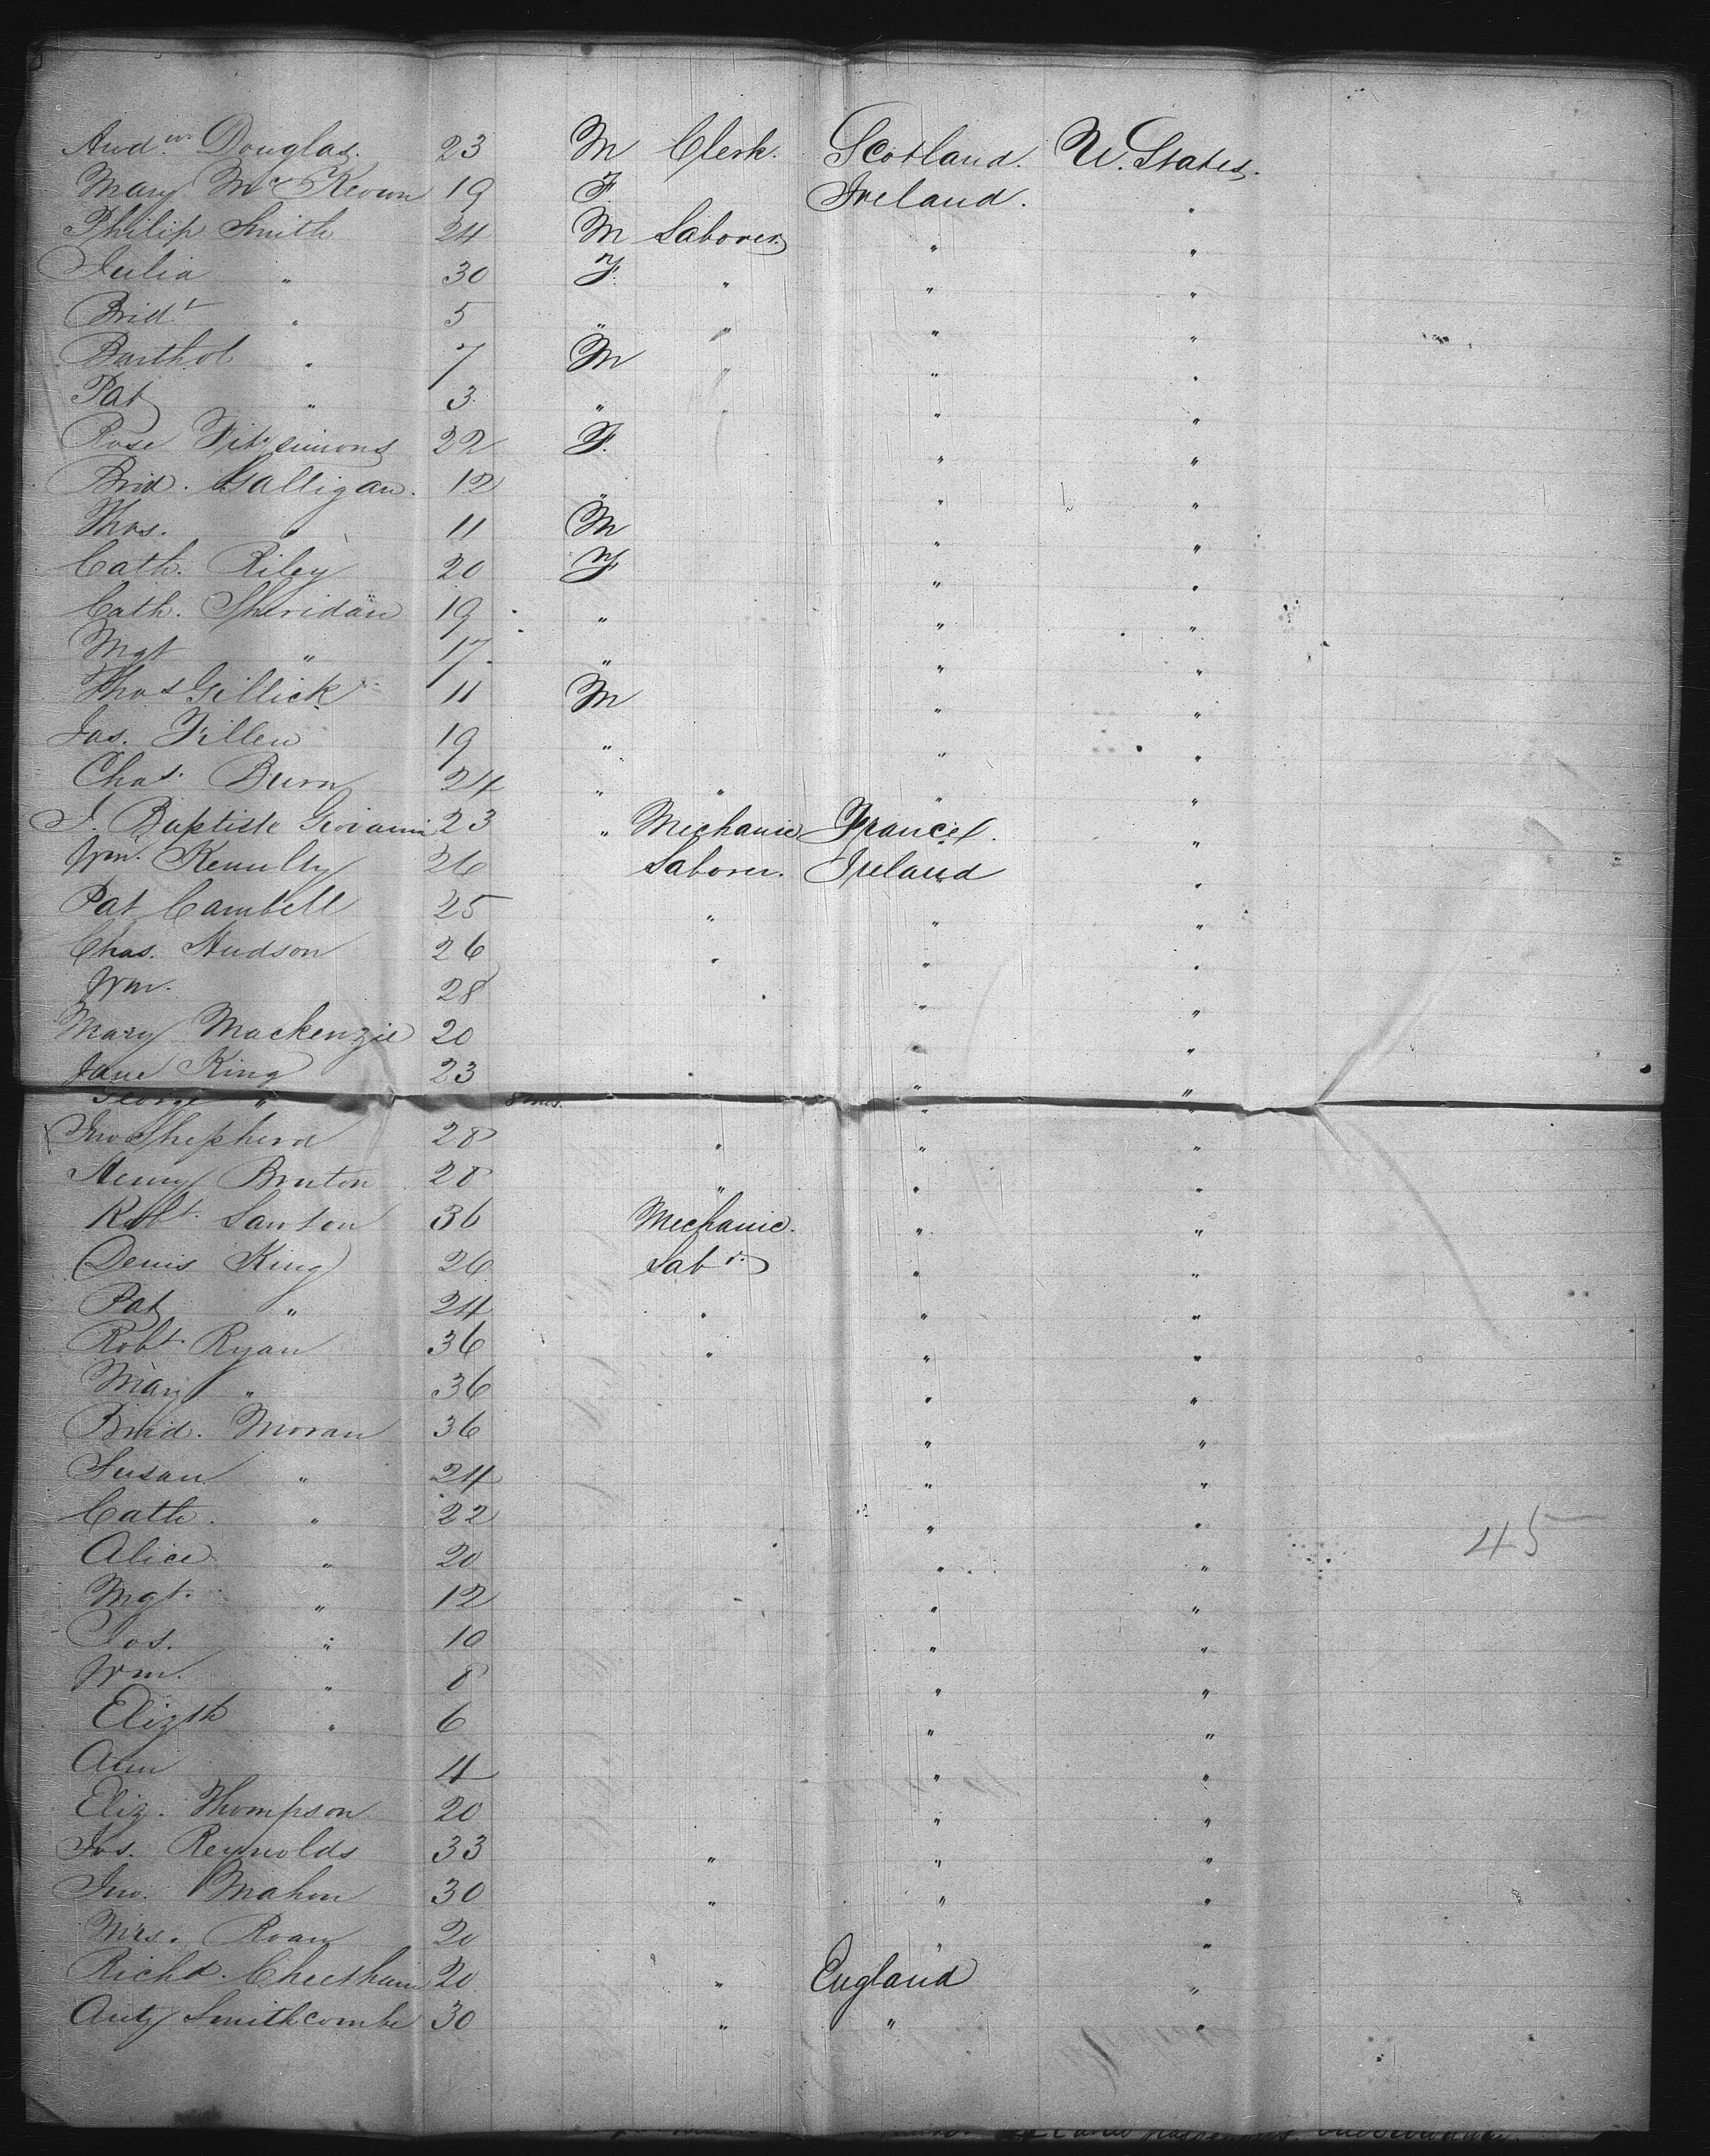 Andw. Douglas. 23 M Clerk. Scotland. U. States.
Mary McKeown 19 F. Ireland. "
Philip Smith 24 M Laborer " "
Julia " 30 F. " " "
Bridt " 5 " " " "
Barthol " 7 M " " "
Pat " 3 " " " "
Rose Fitzsimons 22 F. " "
Brid. Galligan. 12 " " "
Thos. " 11 M " "
Cath. Riley 20 F " "
Cath. Sheridan 19 " " "
Mgt " 17 " " "
Thos Gillick 11 M " "
Jas. Fillen 19 " " "
Chas. Burn 24 " " " "
J. Baptiste Giovanni 23 " Mechanic France. "
Wm. 26 Laborer. Ireland "
Pat Cambell 25 " " "
Chas. Hudson 26 " " "
Wm. 28 " " "
Mary Mackenzie 20 " "
Jane King 23 " "
George " 8 mos. " "
Jno Shepherd 28 " " "
Henry Bruton 28 " " "
Robt. Lawton 36 Mechanic. " "
Denis King 26 Labr. " "
Pat " 24 " " "
Robt. Ryan 36 " " "
Mary " 36 " "
Brid. Moran 36 " "
Susan " 24 " "
Cath. " 22 " "
Alice " 20 " " 45
Mgt. " 12 " "
Jos. " 10 " "
Wm. " 8 " "
Elizth " 6 " "
Ann 4 " "
Eliz. Thompson 20 " "
Jos. Reynolds 33 " " "
Jno. Mahon 30 " " "
Mrs. Roan 20 " "
Richd. Cheetham 20 " England "
Anty Smithcombe 30 " " "